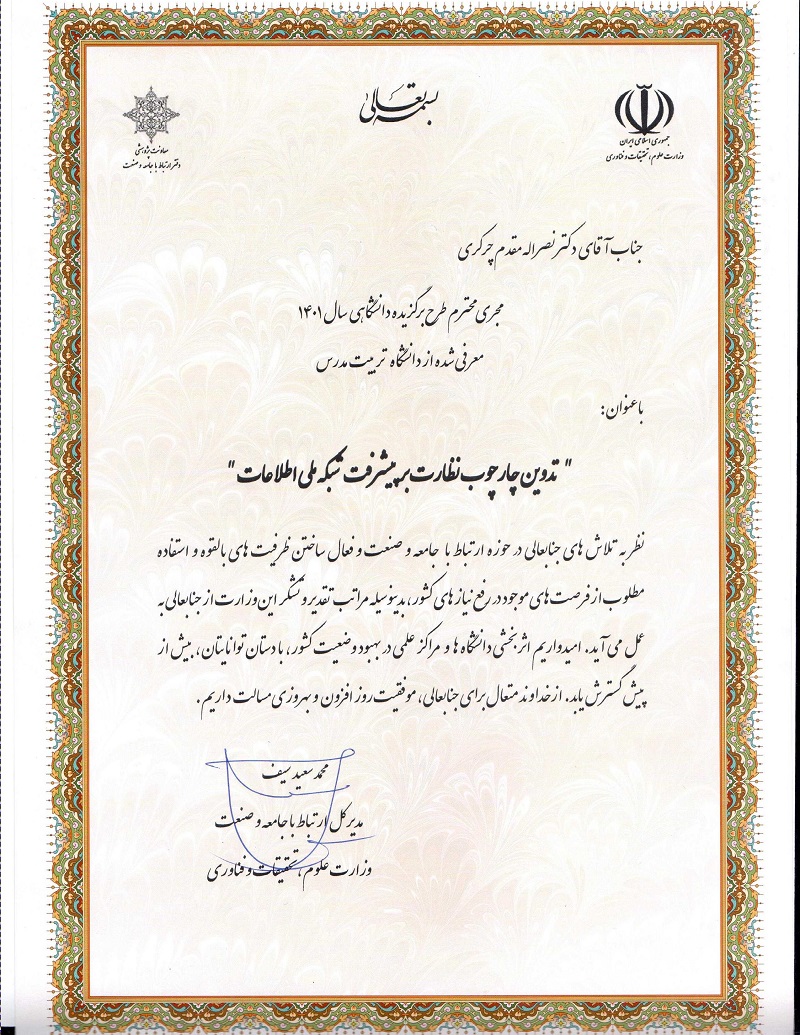 بسمه تعالی
جمهوری اسلامی ایران
وزارت علوم، تحقیقات و فناوری
معاونت پژوهشی
دفتر ارتباط با جامعه و صنعت
جناب آقای دکتر نصراله مقدم چرکری
مجری محترم طرح برگزیده دانشگاهی سال ۱۴۰۱
معرفی شده از دانشگاه تربیت مدرس
با عنوان:
" تدوین چارچوب نظارت بر پیشرفت شبکه ملی اطلاعات "
نظر به تلاش های جنابعالی در حوزه ارتباط با جامعه و صنعت و فعال ساختن ظرفیت های بالقوه و استفاده
مطلوب از فرصت های موجود در رفع نیاز های کشور، بدینوسیله مراتب تقدیر و تشکر این وزارت از جنابعالی به
عمل می آید. امیدواریم اثربخشی دانشگاه ها و مراکز علمی در بهبود وضعیت کشور، با دستان توانایتان، بیش از
پیش گسترش یابد. از خداوند متعال برای جنابعالی، موفقیت روز افزون و بهروزی مسالت داریم.
محمد سعید سیف
مدیر کل ارتباط با جامعه و صنعت
وزارت علوم، تحقیقات و فناوری